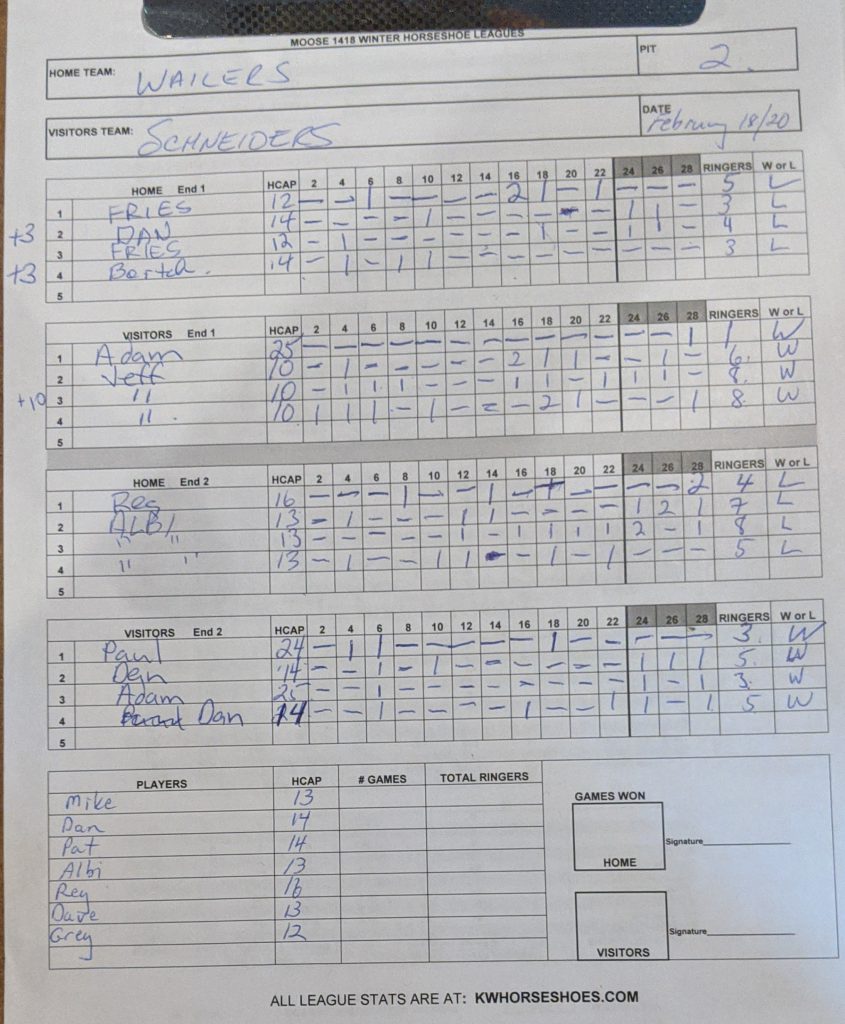 MOOSE 1418 WINTER HORSESHOE LEAGUES
HOME TEAM: WAILERS PIT 2.
VISITORS TEAM: SCHNEIDERS DATE February 18/20
HOME End 1 HCAP 2 4 6 8 10 12 14 16 18 20 22 24 26 28 RINGERS W or L
1 FRIES 12 – – 1 – – – – 2 1 – 1 – – – 5 L
+3 2 DAN 14 – – – – 1 – – – – – – 1 1 – 3 L
3 FRIES 12 – 1 – – – – – – 1 – – 1 1 – 4 L
+3 4 Bortch. 14 – 1 – 1 1 – – – – – – – – – 3 L
5
VISITORS End 1 HCAP 2 4 6 8 10 12 14 16 18 20 22 24 26 28 RINGERS W or L
1 Adam 25 – – – – – – – – – – – – – 1 1 W
2 Jeff 10 – 1 – – – – – 2 1 1 – – 1 – 6. W
+10 3 " 10 – 1 1 1 – – – 1 1 – 1 1 1 – 8. W
4 " . 10 1 1 1 – 1 – – – 2 1 – – – 1 8. W
5
HOME End 2 HCAP 2 4 6 8 10 12 14 16 18 20 22 24 26 28 RINGERS W or L
1 Reg 16 – – – 1 – – 1 – – – – – 2 4 L
2 ALBI 13 – 1 – – – 1 1 – – – – 1 2 1 7 L
3 " " 13 – – – – – 1 – 1 1 1 1 2 – 1 8 L
4 " " 13 – 1 – – 1 1 – – 1 – 1 – – – 5 L
5
VISITORS End 2 HCAP 2 4 6 8 10 12 14 16 18 20 22 24 26 28 RINGERS W or L
1 Paul 24 – 1 1 – – – – – 1 – – – – – 3. W
2 Dan 14 – – 1 – 1 – – – – – – 1 1 1 5. W
3 Adam 25 – – 1 – – – – – – – – 1 – 1 3. W
4 Dan 14 – – 1 – – – – 1 – – 1 1 – 1 5 W
5
PLAYERS HCAP # GAMES TOTAL RINGERS
Mike 13
Dan 14
Pat 14
Albi 13
Reg 16
Dave 13
Greg 12
GAMES WON
HOME Signature
VISITORS Signature
ALL LEAGUE STATS ARE AT: KWHORSESHOES.COM